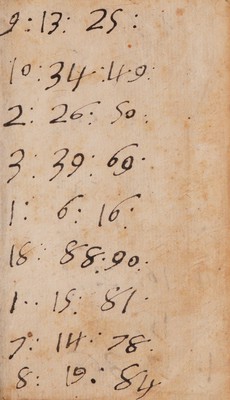 9: 13: 25:
10: 34: 49:
2: 26: 50:
3: 39: 69:
1: 6: 16:
18: 88: 90:
1: 15: 81:
7: 14: 78:
8: 19: 84